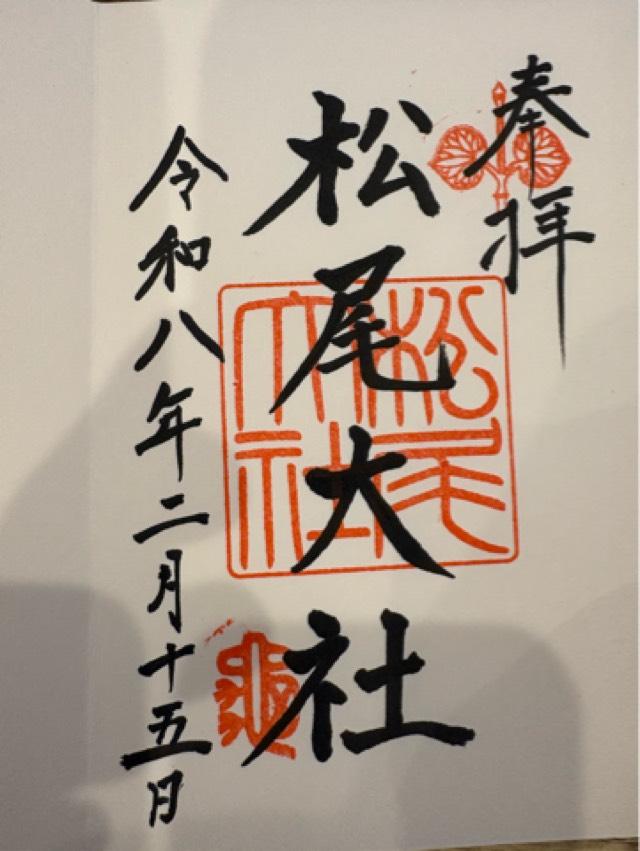 奉拝
松尾大社
松尾大社
令和八年二月十五日